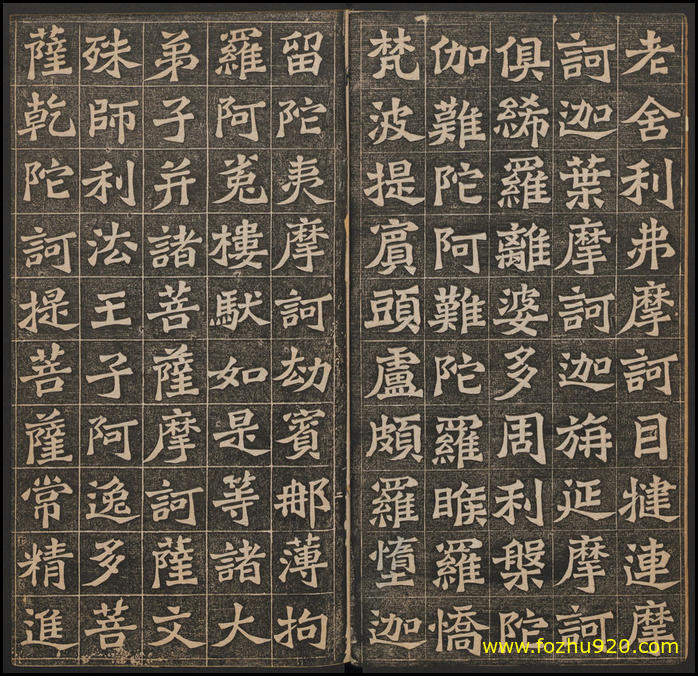 老舍利弗摩訶目揵連摩
訶迦葉摩訶迦旃延摩訶
俱絺羅離婆多周利槃陀
伽難陀阿難陀羅睺羅憍
梵波提賓頭盧頗羅墮迦
留陀夷摩訶劫賓那薄拘
羅阿㝹樓馱如是等諸大
弟子并諸菩薩摩訶薩文
殊師利法王子阿逸多菩
薩乾陀訶提菩薩常精進
www.fozhu920.com